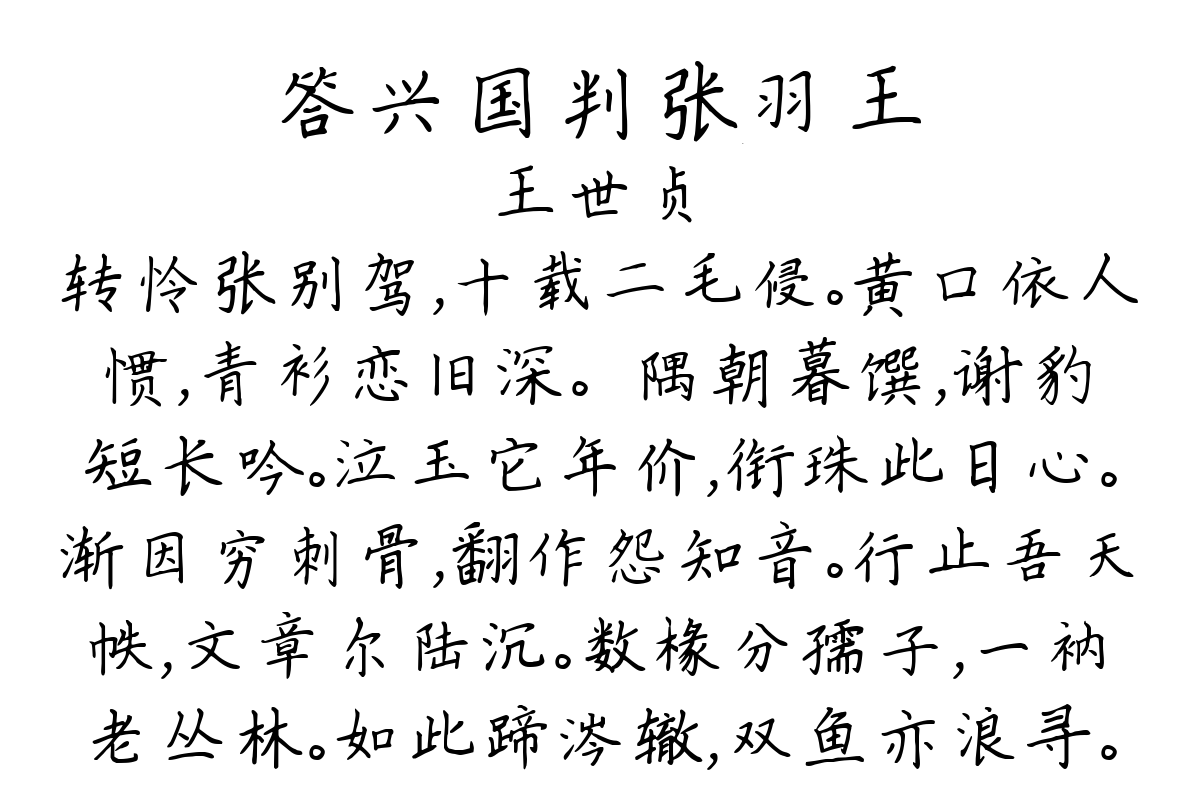 答兴国判张羽王
王世贞
转怜张别驾,十载二毛侵。黄口依人
惯,青衫恋旧深。 隅朝暮馔,谢豹
短长吟。泣玉它年价,衔珠此日心。
渐因穷刺骨,翻作怨知音。行止吾天
帙,文章尔陆沉。数椽分孺子,一衲
老丛林。如此蹄涔辙,双鱼亦浪寻。